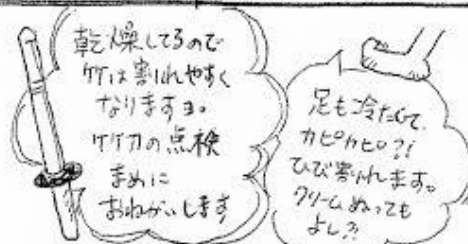 乾燥してるので
竹は割れやすく
なりますヨ。
竹刀の点検
まめに
おねがいします
足も冷たくて、
カピカピ?!
ひび割れます。
クリームぬっても
よし?